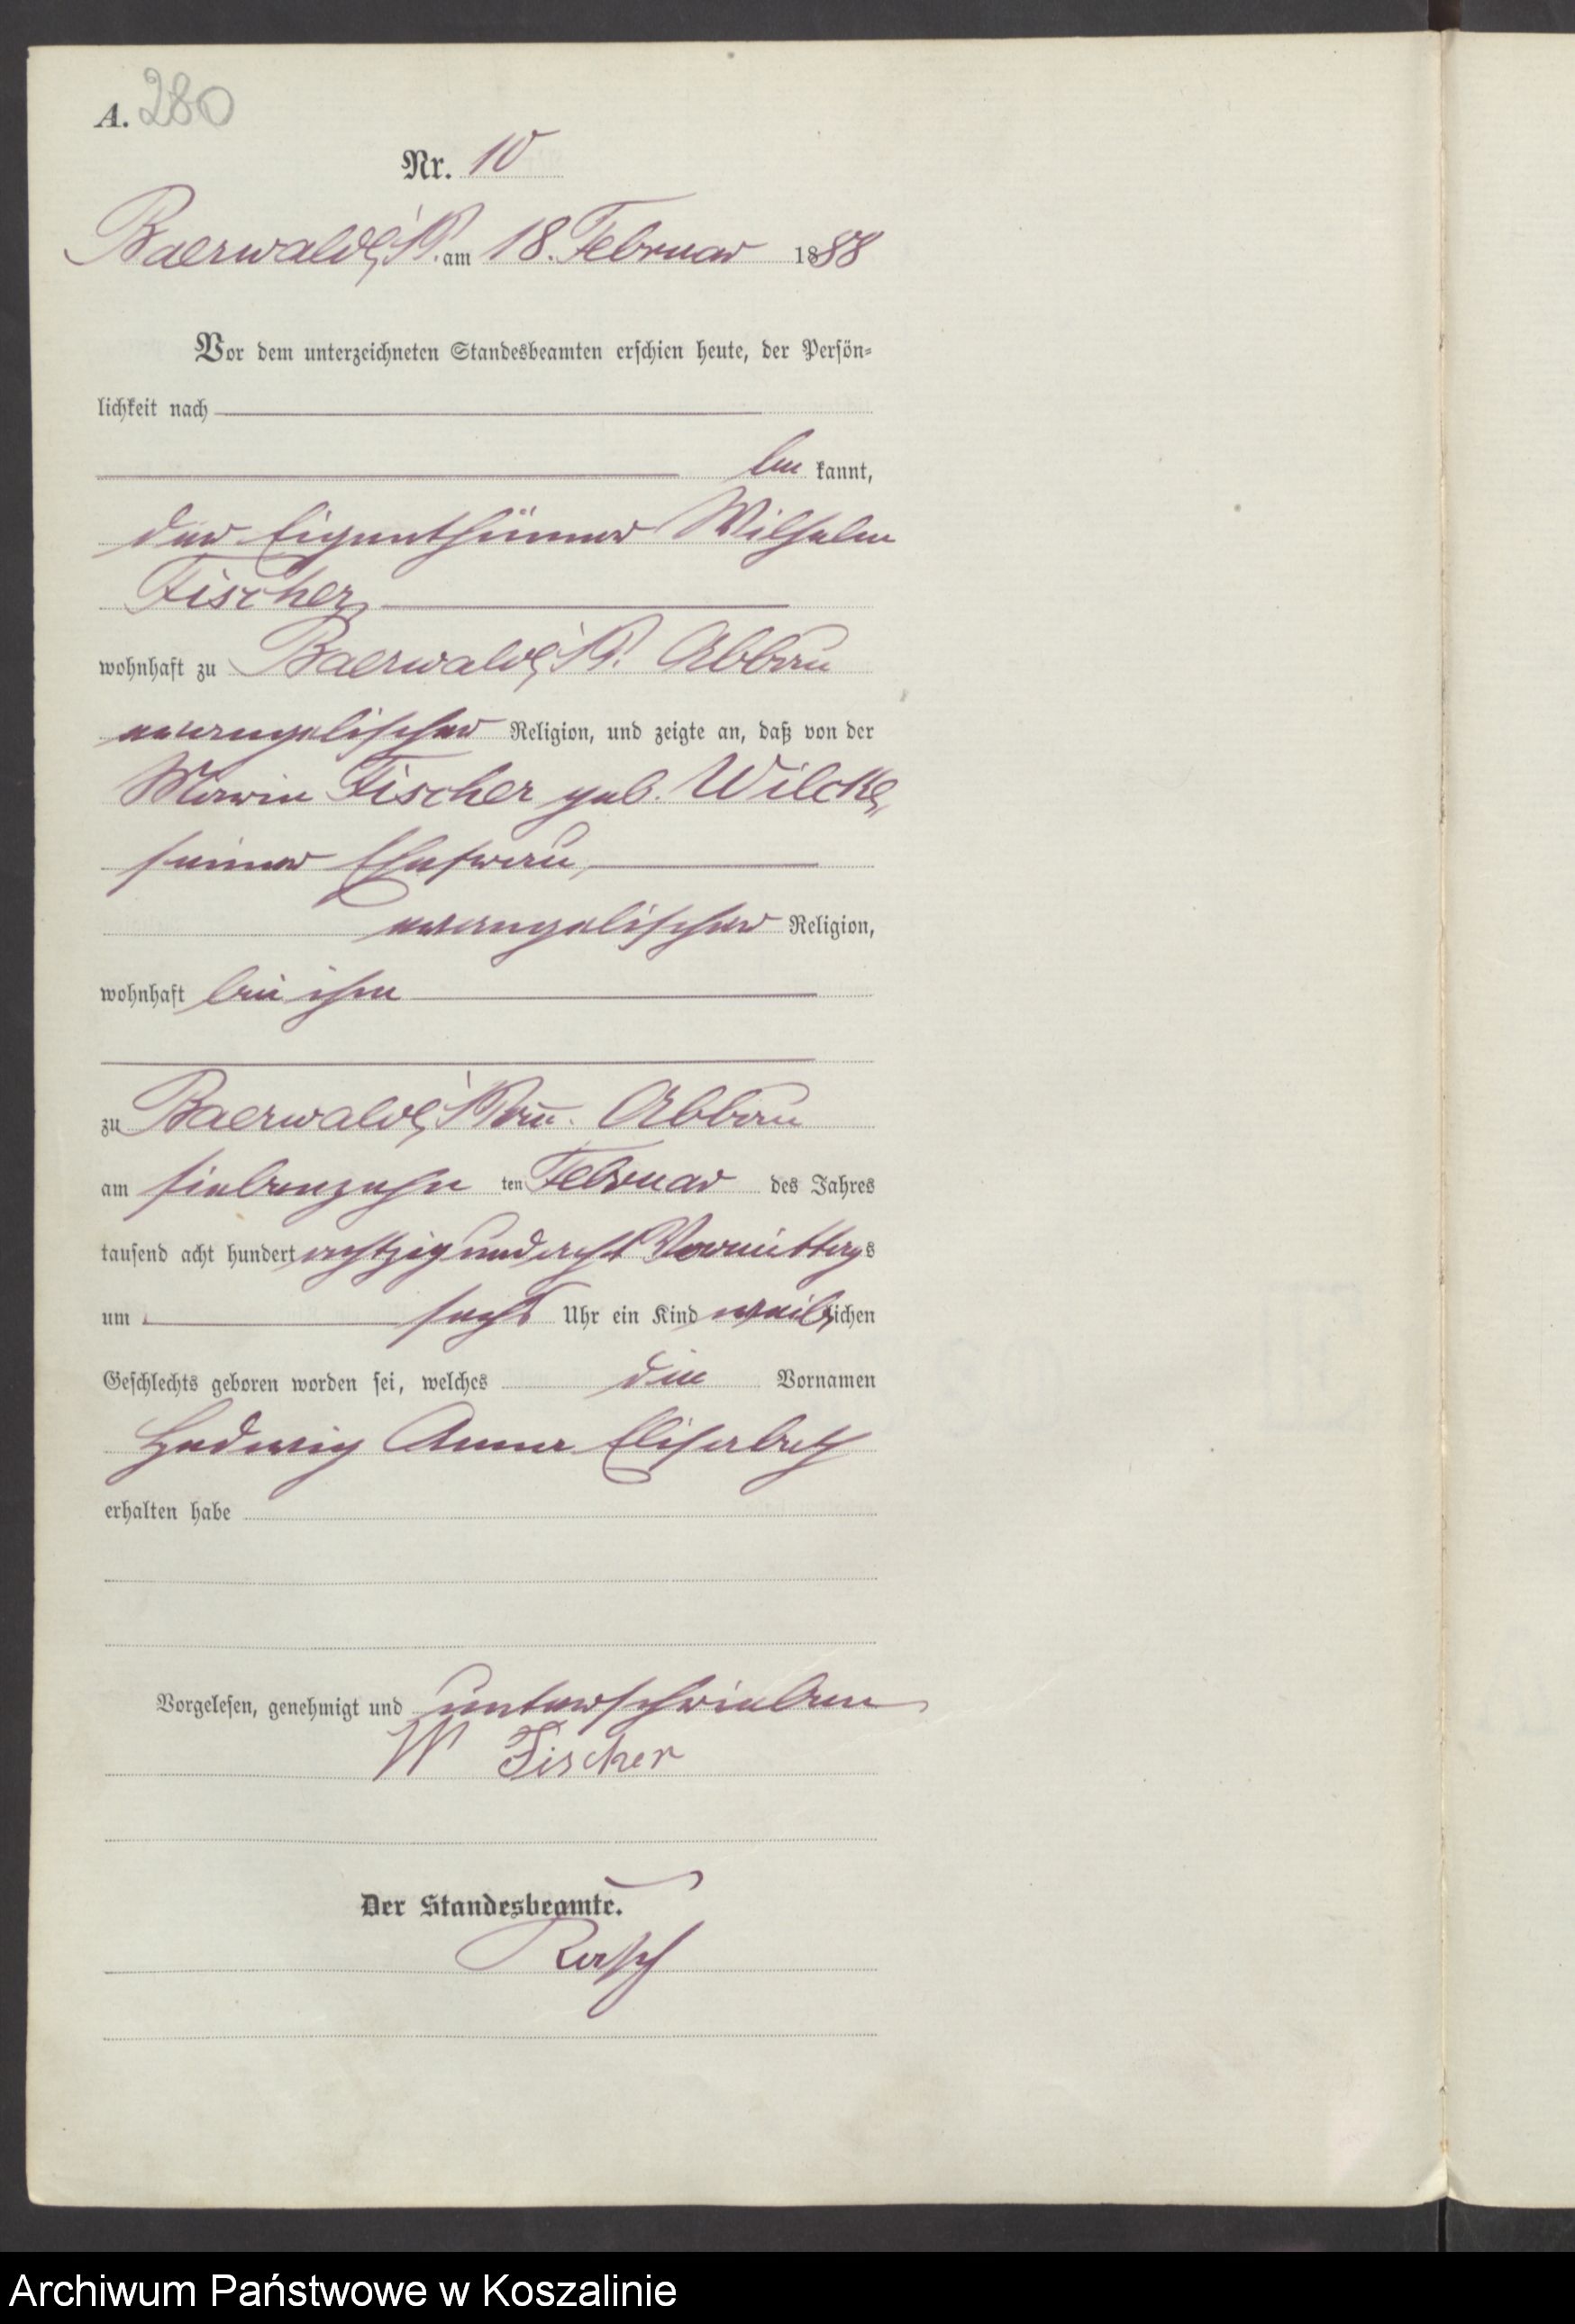 A. 280
Nr. 10
Baerwalde i/P. am 18. Februar 1888
Vor dem unterzeichneten Standesbeamten erschien heute, der Persön-
lichkeit nach
be kannt,
der Eigenthümer Wilhelm
Fischer,
wohnhaft zu Baerwalde i/P. Abbau
evangelischer Religion, und zeigte an, daß von der
Marie Fischer geb. Wilcke,
seiner Ehefrau,
evangelischer Religion,
wohnhaft bei ihm
zu Baerwalde i/Pom. Abbau
am siebenzehn ten Februar des Jahres
tausend acht hundert achtzig und acht Vormittags
um sechs Uhr ein Kind weiblichen
Geschlechts geboren worden sei, welches die Vornamen
Hedwig Anna Elisabeth
erhalten habe
Vorgelesen, genehmigt und unterschrieben
W Fischer
Der Standesbeamte.
Archiwum Państwowe w Koszalinie